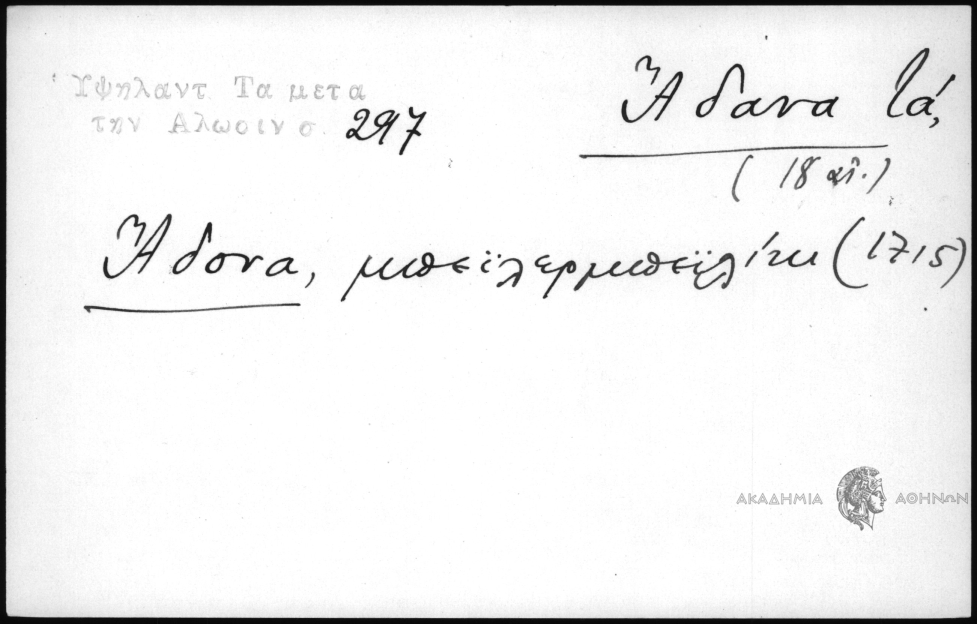 Ὑψηλαντ Τα μετα
την Αλωσιν σ. 297
Ἄδανα τά,
(18 αἰ.)
Ἄδονα, μπεϊλερμπεϊλίκι (1715)
ΑΚΑΔΗΜΙΑ ΑΘΗΝΩΝ